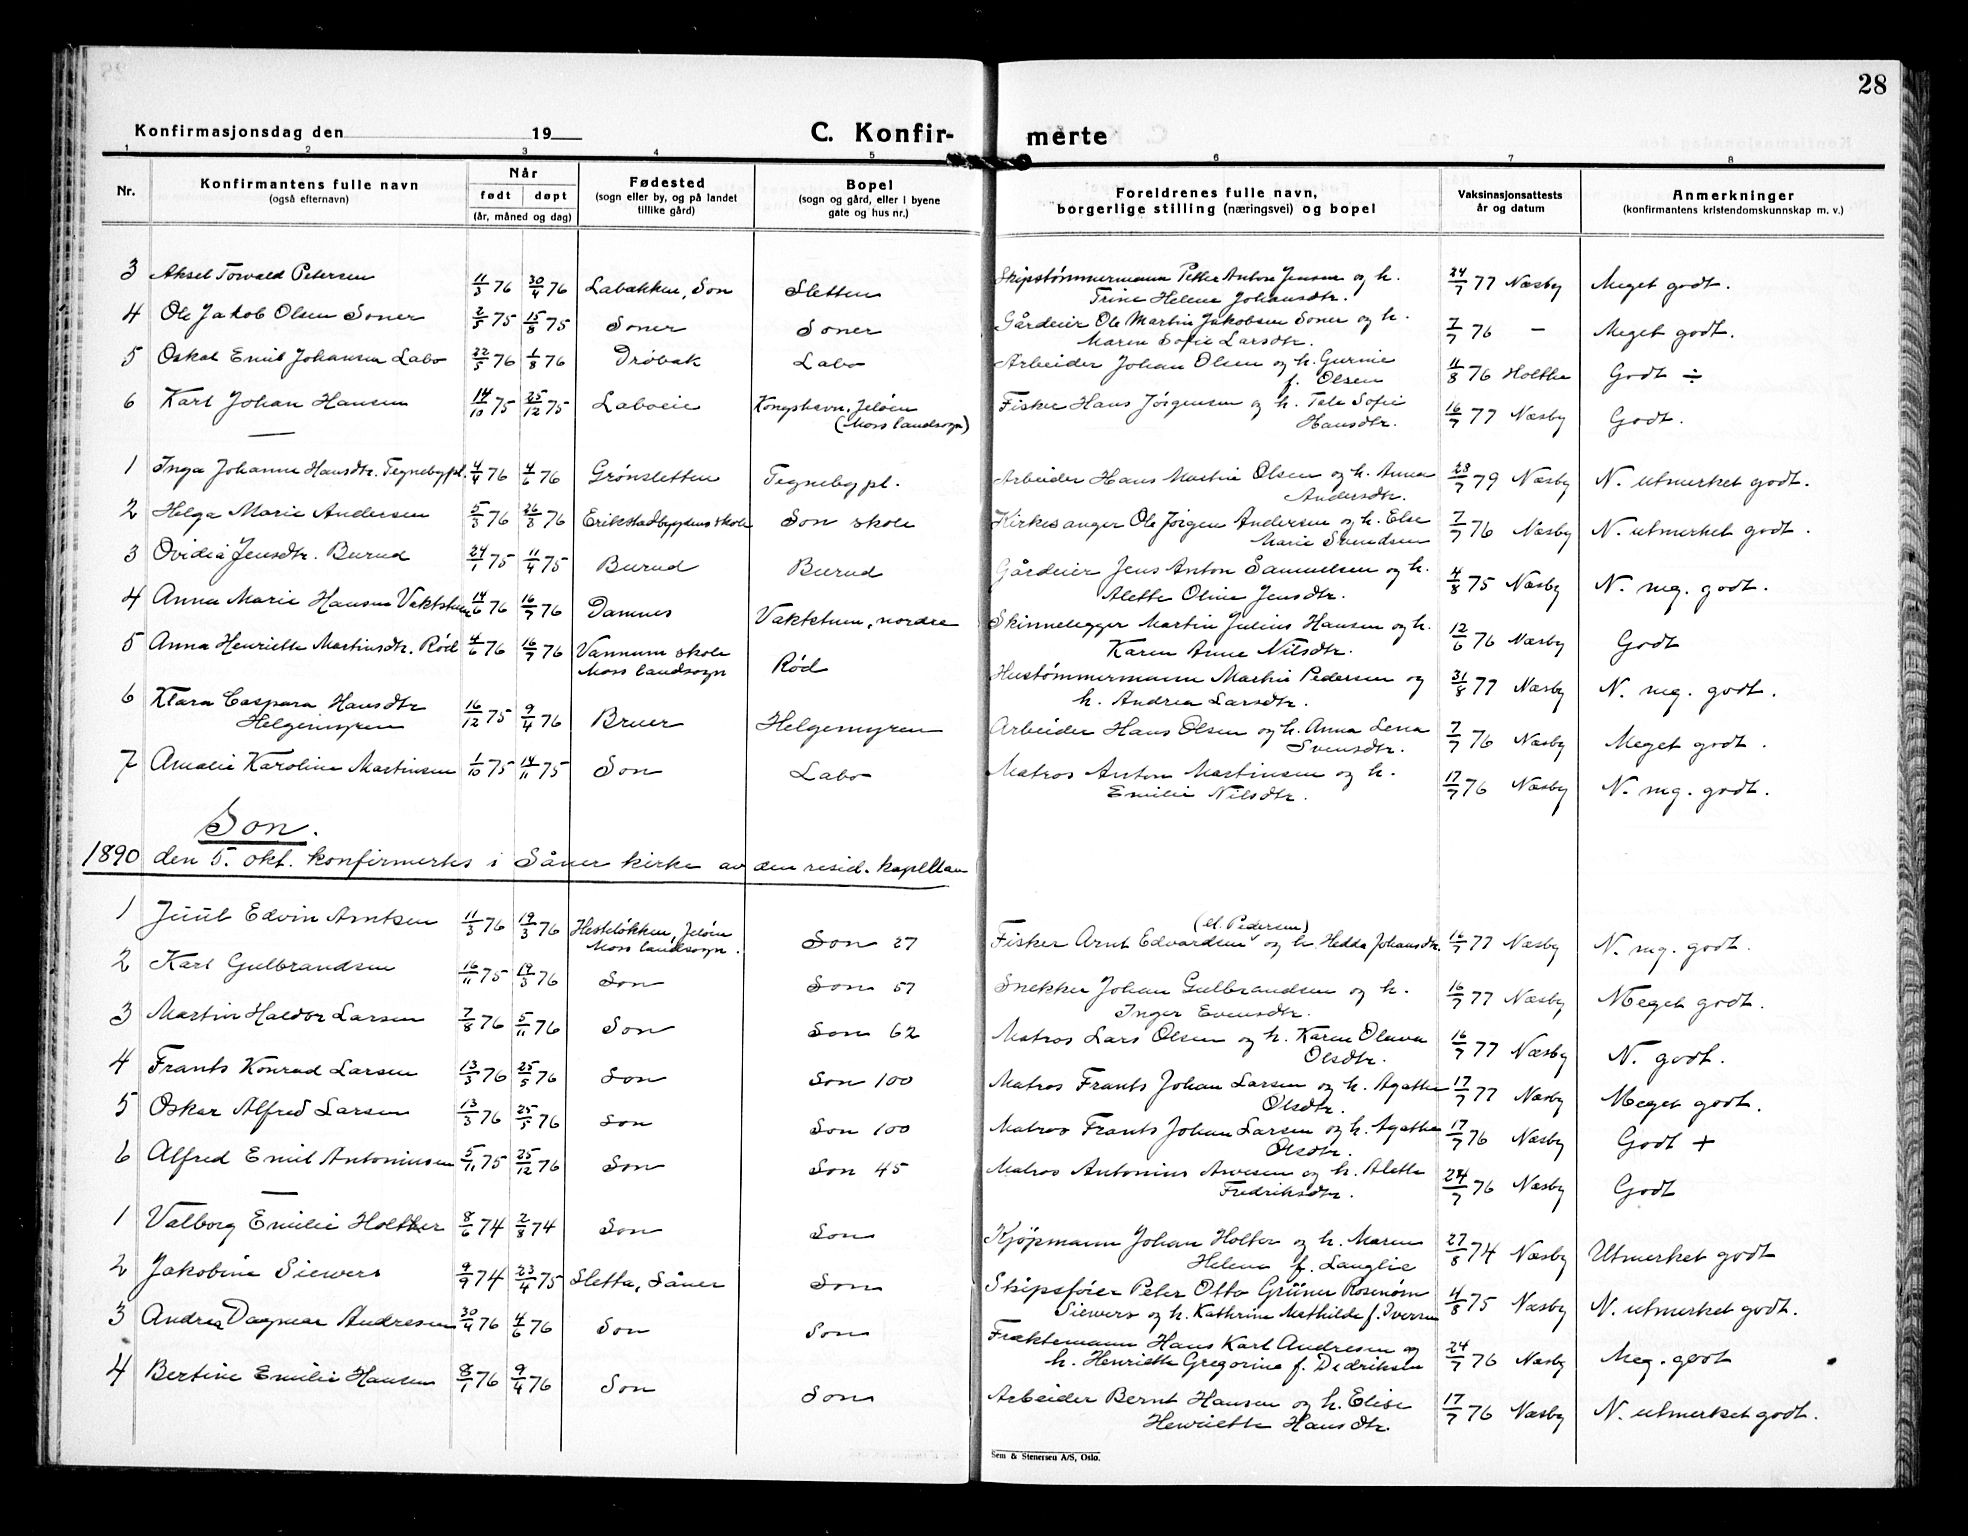 28
Konfirmasjonsdag den 19
C. Konfir- merte
1 2 3 4 5 6 7 8
Nr. Konfirmantens fulle navn (også efternavn) Når født døpt (år, måned og dag) Fødested (sogn eller by, og på landet tillike gård) Bopel (sogn og gård, eller i byene gate og hus nr.) Foreldrenes fulle navn, borgerlige stilling (næringsvei) og bopel Vaksinasjonsattests år og datum Anmerkninger (konfirmantens kristendomskunnskap m. v.)
3 Aksel Torvald Petersen 11/3 76 30/4 76 Labakken, Son Sletten Skipstømmermann Petter Anton Jensen og h. Trine Helene Johansdtr. 24/7 77 Næsby Meget godt.
4 Ole Jakob Olsen Soner 2/5 75 15/8 75 Soner Soner Gårdeier Ole Martin Jakobsen Soner og h. Maren Sofie Larsdtr. 7/7 76 — Meget godt.
5 Oskar Emil Johansen Labo 22/5 76 1/8 76 Drøbak Labo Arbeider Johan Olsen og h. Gurine f. Olsen 11/8 76 Holthe Godt ÷
6 Karl Johan Hansen 14/10 75 25/12 75 Laboeie Kongshavn, Jeløen (Moss landsogn) Fisker Hans Jørgensen og h. Tale Sofie Hansdtr. 16/7 77 Næsby Godt.
1 Inga Johanne Hansdtr. Tegnebypl. 4/4 76 4/6 76 Grønsletten Tegnebypl. Arbeider Hans Martin Olsen og h. Anna Andersdtr. 23/7 79 Næsby N. utmerket godt.
2 Helga Marie Andersen 5/3 76 26/3 76 Erikstadbygdens skole Son skole Kirkesanger Ole Jørgen Andersen og h. Else Marie Svendsen 7/7 76 Næsby N. utmerket godt.
3 Ovidia Jensdtr. Burud 24/1 75 11/4 75 Burud Burud Gårdeier Jens Anton Samuelsen og h. Alette Oline Jensdtr. 4/8 75 Næsby N. meg. godt.
4 Anna Marie Hansen Vaktstuen 14/6 76 16/7 76 Damnes Vaktstuen, nordre Skinnelegger Martin Julius Hansen og h. Karen Anne Nilsdtr. 12/6 76 Næsby Godt
5 Anna Henriette Martinsdtr. Rød 4/6 76 16/7 76 Vannum skole Moss landsogn Rød Hustømmermann Martin Pedersen og h. Andrea Larsdtr. 31/8 77 Næsby N. meg. godt.
6 Klara Caspara Hansdtr Helgemyren 16/12 75 9/4 76 Bruer Helgemyren Arbeider Hans Olsen og h. Anna Lena Svensdtr. 7/7 76 Næsby Meget godt.
7 Amalie Karoline Martinsen 1/10 75 14/11 75 Son Labo Matros Anton Martinsen og h. Emilie Nilsdtr. 17/7 76 Næsby N. meg. godt.
Son.
1890 den 5. okt. konfirmertes i Såner kirke av den resid. kapellan
1 Juul Edvin Arntsen 11/3 76 19/3 76 Hesteløkken, Jeløen Moss landsogn. Son 27 Fisker Arnt Edvardsen (el. Pedersen) og h. Hedda Johansdtr. 16/7 77 Næsby N. meg. godt.
2 Karl Gulbrandsen 16/11 75 19/3 76 Son Son 57 Snekker Johan Gulbrandsen og h. Inger Evensdtr. 16/7 77 Næsby Meget godt.
3 Martin Haldor Larsen 7/8 76 5/11 76 Son Son 62 Matros Lars Olsen og h. Karen Olava Olsdtr. 16/7 77 Næsby N. godt.
4 Frants Konrad Larsen 13/3 76 25/5 76 Son Son 100 Matros Frants Johan Larsen og h. Agathe Olsdtr. 17/7 77 Næsby Meget godt.
5 Oskar Alfred Larsen 13/3 76 25/5 76 Son Son 100 Matros Frants Johan Larsen og h. Agathe Olsdtr. 17/7 76 Næsby Godt +
6 Alfred Emil Antoniusen 5/11 75 25/12 76 Son Son 45 Matros Antonius Arvesen og h. Alette Fredriksdtr. 24/7 76 Næsby Godt
1 Valborg Emilie Holther 8/6 74 2/8 74 Son Son Kjøpmann Johan Holter og h. Maren Helene f. Langlie 27/8 74 Næsby Utmerket godt
2 Jakobine Siewers 9/9 74 23/4 75 Sletta, Såner Son Skipsfører Peter Otto Grüner Rosenørn Siewers og h. Kathrine Mathilde f. Iversen 4/8 75 Næsby N. utmerket godt.
3 Andrea Dagmar Andresen 30/4 76 4/6 76 Son Son Fraktemann Hans Karl Andresen og h. Henriette Gregorine f. Dedriksen 24/7 76 Næsby Meg. godt
4 Bertine Emilie Hansen 8/1 76 9/4 76 Son Son Arbeider Bernt Hansen og h. Elise Henriette Hansdtr. 17/7 76 Næsby N. utmerket godt.
Sem & Stenersen A/S, Oslo.